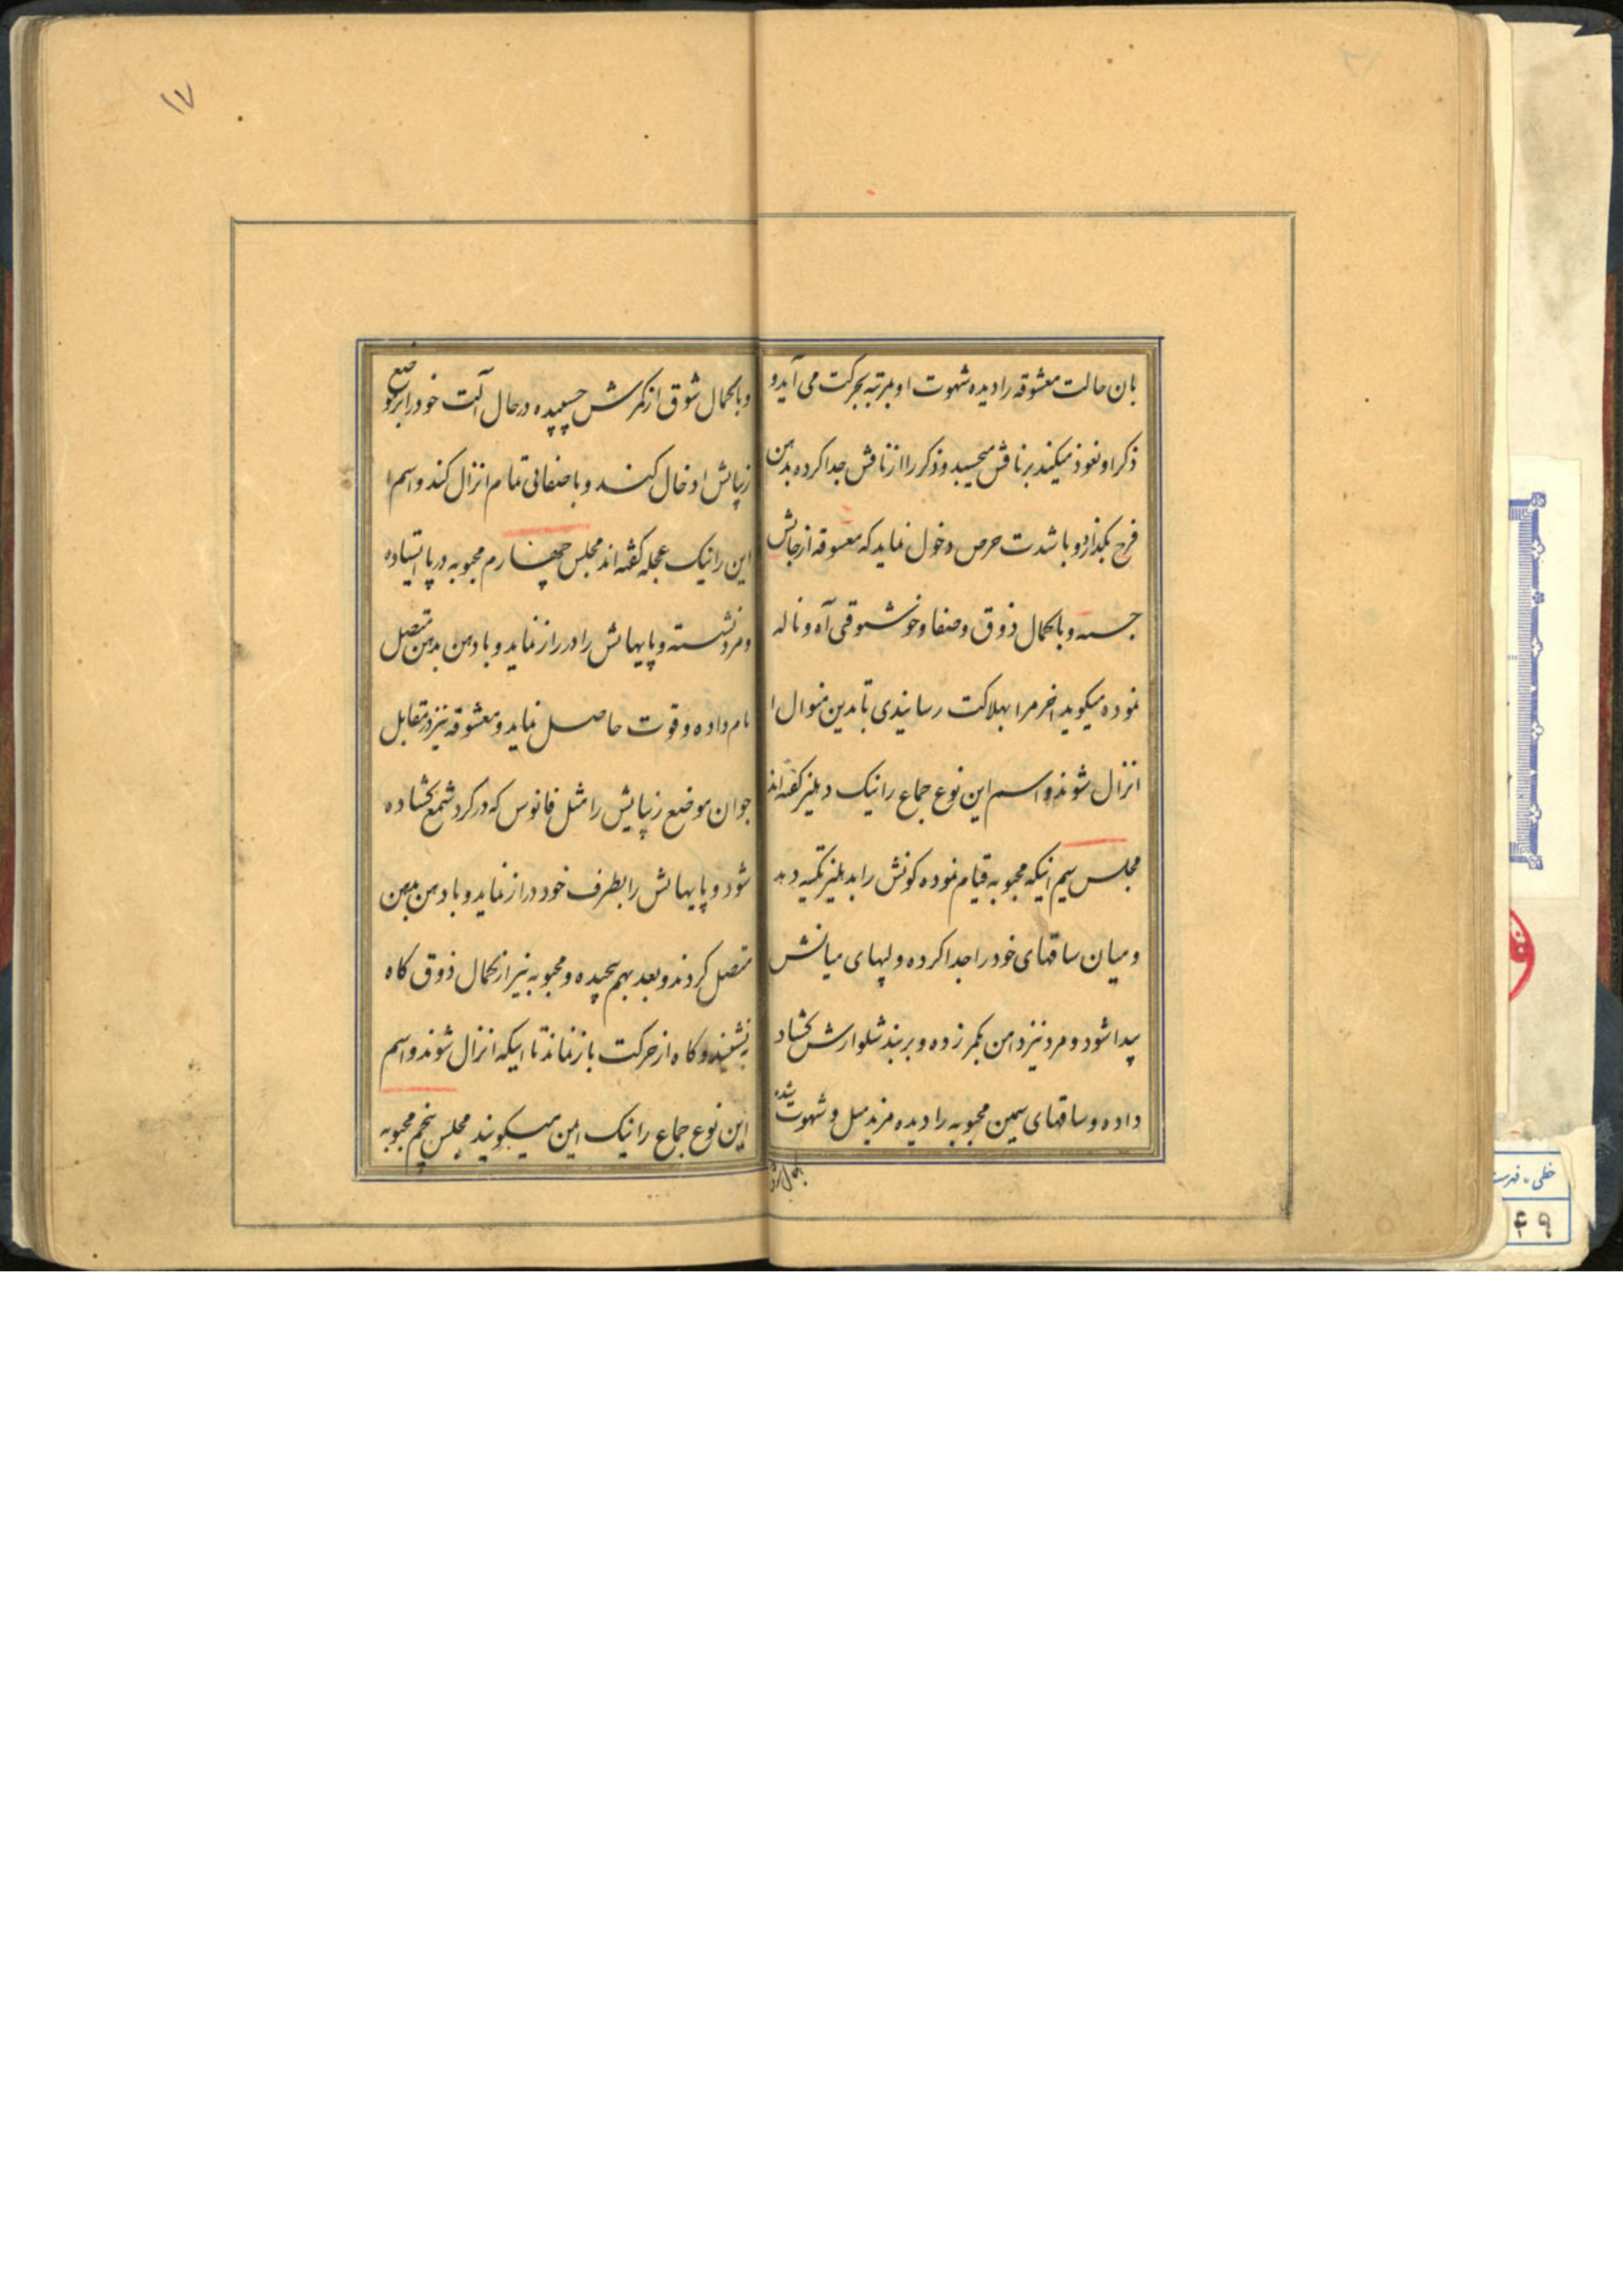 بان حالت معشوقه را دیده شهوت او بمرتبه بحرکت می آید و
ذکر او نعوذ میکند بر نافش میچسپد و ذکر را از نافش جدا کرده بدهن
فرج بگذارد و با شدت حرص دخول نماید که معشوقه از جایش
جسته و با کمال ذوق و صفا و خوشوقتی آه و ناله
نموده میکوید اخر مرا بهلاکت رسانیدی تا بدین منوال ا
انزال شوند و اسم این نوع جماع را نیک دهلیز کفته اند
مجلس سیم اینکه محبوبه قیام نموده کونش را بدهلیز تکیه دهد
و میان ساقهای خود را جدا کرده و لبهای میانش
پیدا شود و مرد نیز دامن بکمر زده و بر بند شلوارش کشاد
داده و ساقهای سیمین محبوبه را دیده مزید میل و شهوت شده
بکمال شوق
۱۷
و با کمال شوق از کمرش چسپیده در حال آلت خود را بر موضع
زیبایش ادخال کند و با صفائی تمام انزال کند و اسم ا
این را نیک عجله کفته اند مجلس چهارم محبوبه در پا ایستاده
و مرد نشسته و پایهایش را درراز نماید و با دهن بدهن متصل
نام داده و قوت حاصل نماید و معشوقه نیز در مقابل
جوان موضع زیبایش را مثل فانوس که در کرد شمع کشاده
شود و پایهایش را بطرف خود دراز نماید و با دهن بدهن
متصل کردند و بعد بهم پیچیده و محبوبه نیز از کمال ذوق کاه
بنشیند و کاه از حرکت باز نماند تا اینکه انزال شوند و اسم
این نوع جماع را نیک امین میکویند مجلس پنجم محبوبه
خطی - فهرست
۴۹